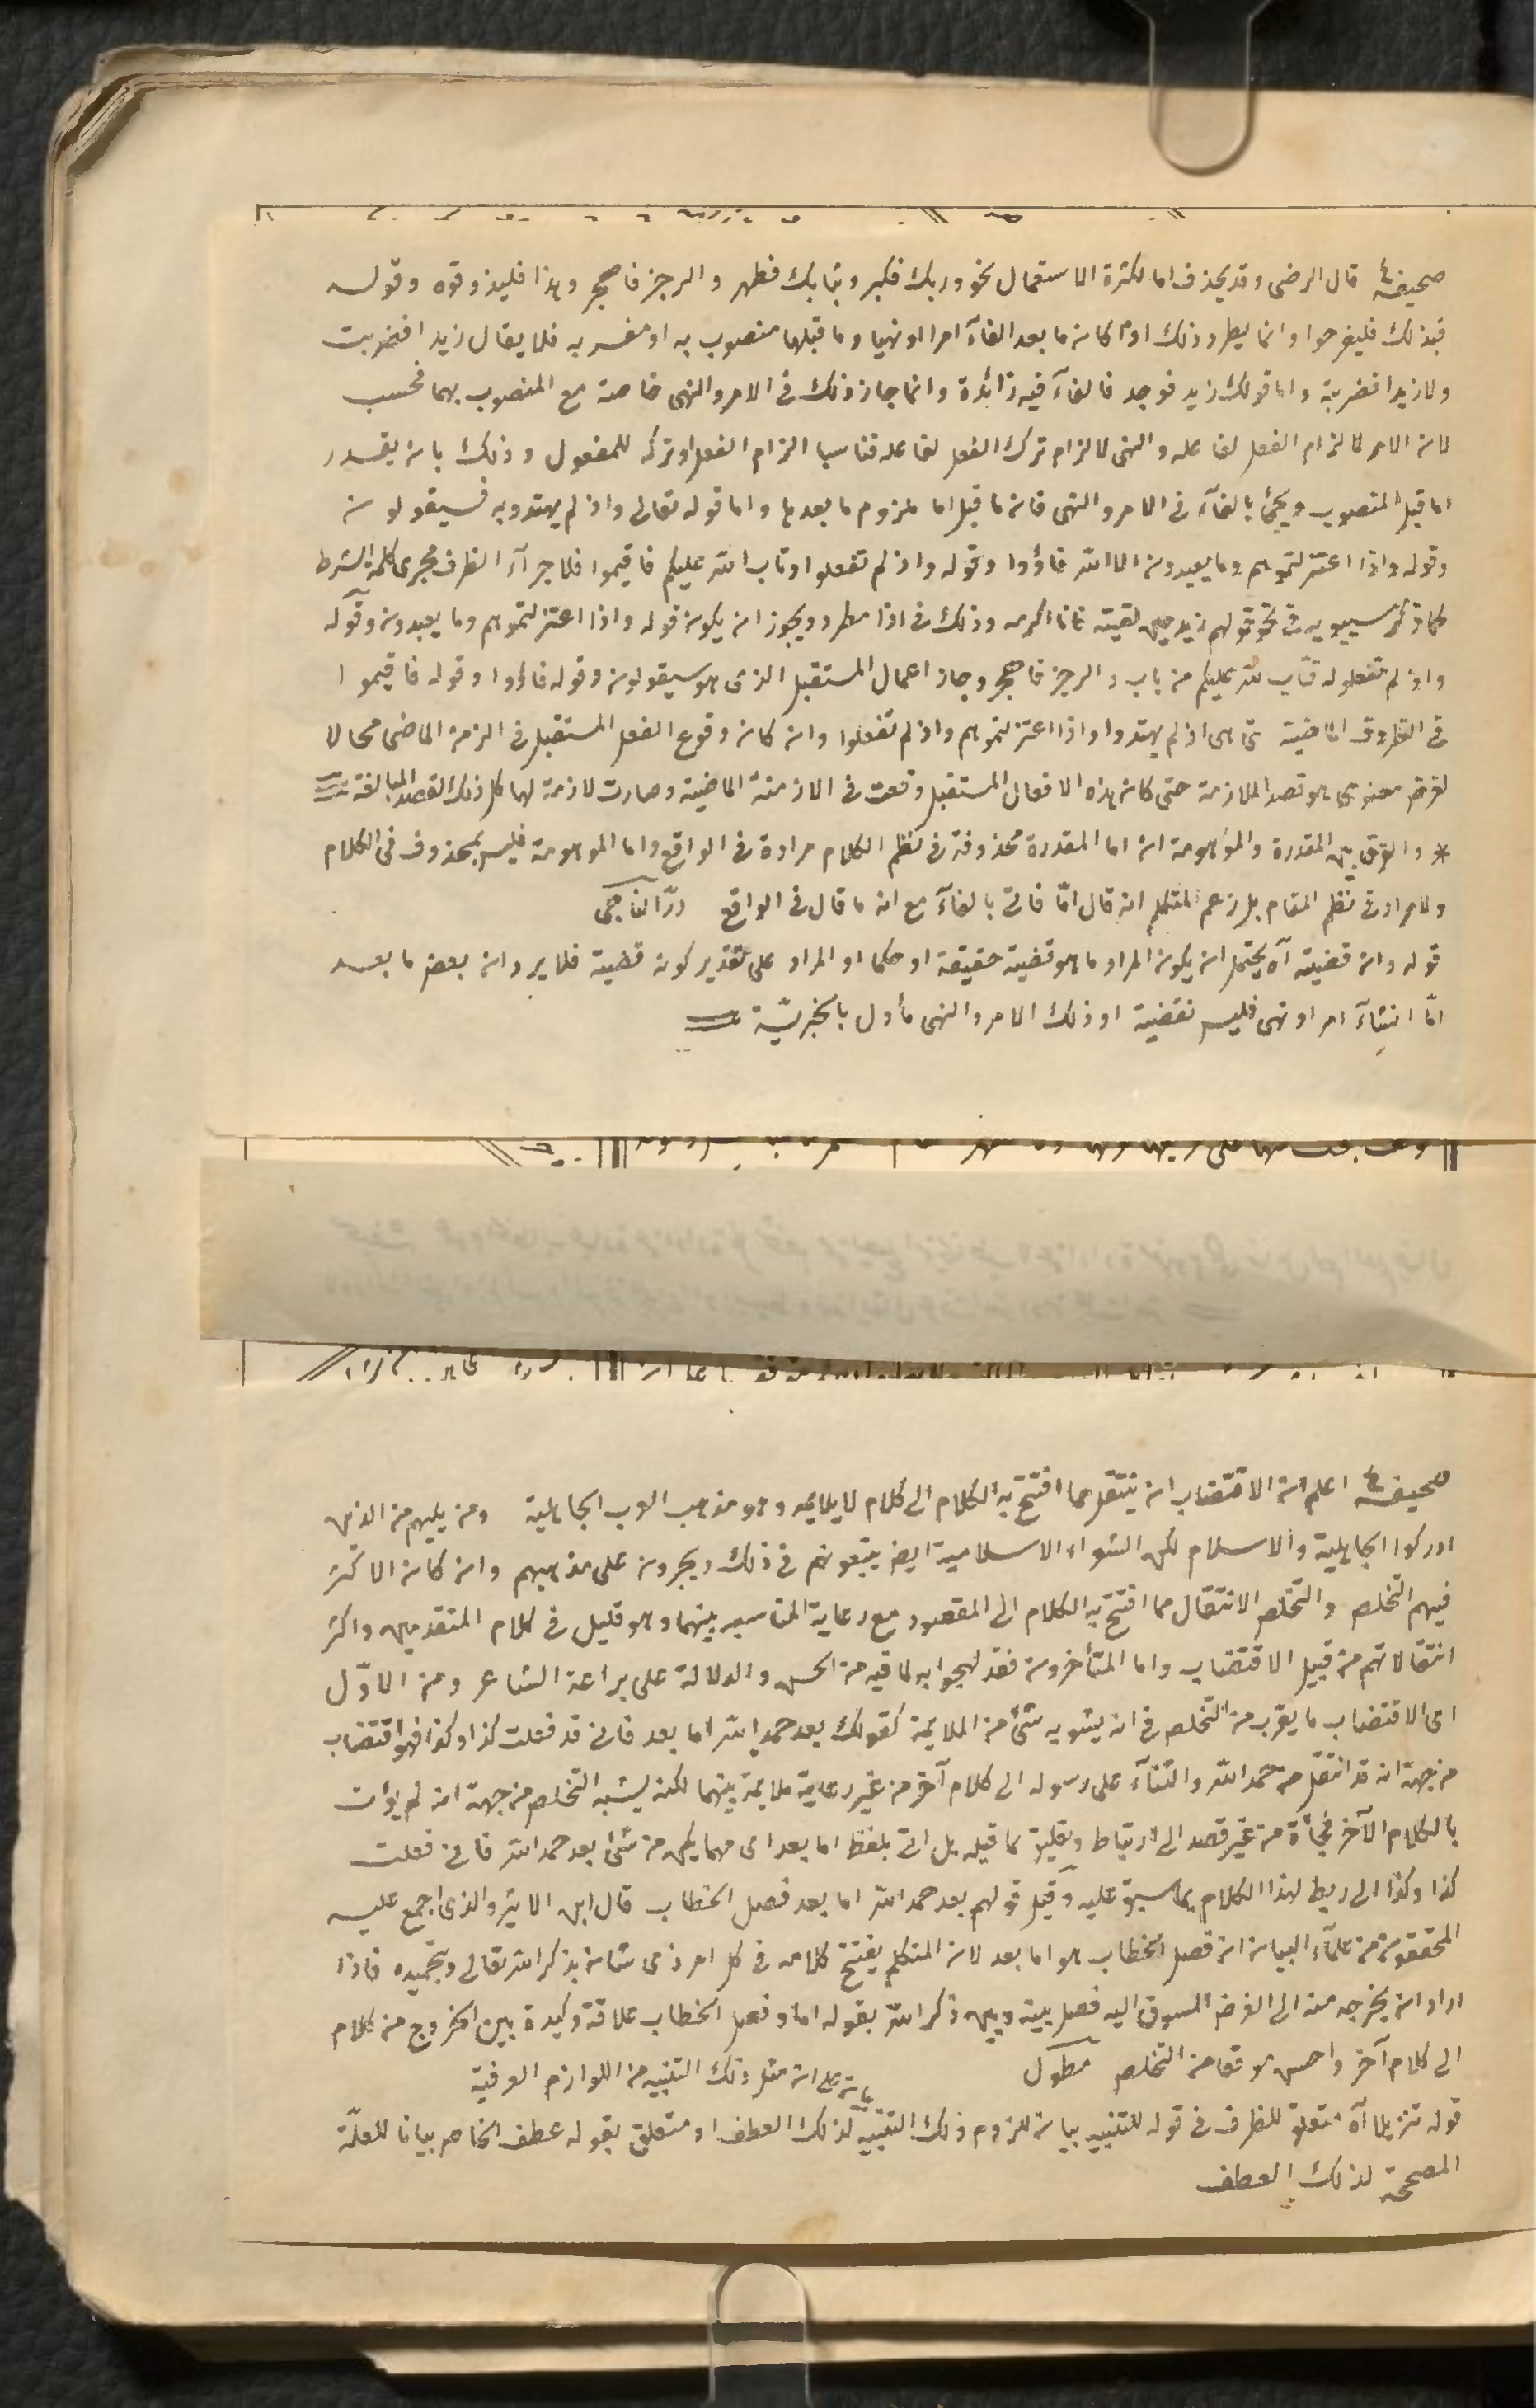 صحيفة ٤ قال الرضى وقد يحذف اما لكثرة الاستعمال نحو وربك فكبر وثيابك فطهر والرجز فاهجر وهذا فليذوقوه وقوله
فبذلك فليفرحوا وانما يطرد ذلك اذا كان ما بعد الفآء امرا او نهيا وما قبلها منصوب به او مفسر به فلا يقال زيدا فضربت
ولا زيدا فضربته واما قولك زيد فوجد فالفآء فيه زائدة وانما جاز ذلك فى الامر والنهى خاصة مع المنصوب بهما فحسب
لان الامر لالزام الفعل لفاعله والنهى لالزام ترك الفعل لفاعله فناسبا الزام الفعل او تركه للمفعول وذلك بان يقدر
اما قبل المنصوب ويجئ بالفآء فى الامر والنهى فان ما قبل اما ملزوم ما بعدها واما قوله تعالى واذ لم يهتدوا به فسيقولون
وقوله واذا اعتزلتموهم وما يعبدون الا الله فاؤوا وقوله واذ لم تفعلوا وتاب الله عليكم فاقيموا فلاجرآء الظرف مجرى كلمة الشرط
كما ذكر سيبويه فى نحو قولهم زيد حين لقيته فانا اكرمه وذلك فى اذا مطرد ويجوز ان يكون قوله واذا اعتزلتموهم وما يعبدون وقوله
واذ لم تفعلوا وتاب الله عليكم من باب والرجز فاهجر وجاز اعمال المستقبل الذى هو سيقولون وقوله فاؤوا وقوله فاقيموا
فى الظروف الماضية التى هى اذ لم يهتدوا واذا اعتزلتموهم واذ لم تفعلوا وان كان وقوع الفعل المستقبل فى الزمن الماضى محالا
لغرض معنوى هو قصد الملازمة حتى كان هذه الافعال المستقبل وقعت فى الازمنة الماضية وصارت لازمة لها كل ذلك لقصد المبالغة
* والفرق بين المقدرة والموهومة ان اما المقدرة محذوفة فى نظم الكلام مرادة فى الواقع واما الموهومة فليس بمحذوف فى الكلام
ولا مراد فى نظم المقام بل زعم المتكلم انه قال امّا فاتى بالفآء مع انه ما قال فى الواقع درّ الناجى
قوله وان قضيته آه يحتمل ان يكون المراد ما هو قضية حقيقة او حكما او المراد على تقدير كونه قضية فلا يرد ان بعض ما بعد
امّا انشآء امر او نهى فليس بقضية او ذلك الامر والنهى مأول بالخبريّة
صحيفة ٤ اعلم ان الاقتضاب ان ينتقل مما افتتح به الكلام الى كلام لا يلايمه وهو مذهب العرب الجاهلية ومن يليهم من الذين
ادركوا الجاهلية والاسلام لكن الشعراء الاسلامية ايض يتبعونهم فى ذلك ويجرون على مذهبهم وان كان الاكثر
فيهم التخلص والتخلص الانتقال مما افتتح به الكلام الى المقصود مع رعاية المناسبه بينهما وهو قليل فى كلام المتقدمين واكثر
انتقالاتهم من قبيل الاقتضاب واما المتأخرون فقد لهجوا به لما فيه من الحسن والدلالة على براعة الشاعر ومن الاوّل
اى الاقتضاب ما يقرب من التخلص فى انه يشوبه شئ من الملايمة كقولك بعد حمد الله اما بعد فانى قد فعلت كذا وكذا فهو اقتضاب
من جهة انه قد انتقل من حمد الله والثنآء على رسوله الى كلام آخر من غير رعاية ملايمة بينهما لكنه يشبه التخلص من جهة انه لم يؤت
بالكلام الآخر فجأة من غير قصد الى ارتباط وتعليق بما قبله بل اتى بلفظ اما بعد اى مهما يكن من شئ بعد حمد الله فانى فعلت
كذا وكذا الى ربط لهذا الكلام بما سبق عليه وقيل قولهم بعد حمد الله اما بعد فصل الخطاب قال ابن الاثير والذى اجمع عليه
المحققون من علمآء البيان ان فصل الخطاب هو اما بعد لان المتكلم يفتتح كلامه فى كل امر ذى شان بذكر الله تعالى وتحميده فاذا
اراد ان يخرج منه الى الغرض المسوق اليه فصل بينه وبين ذكر الله بقوله اما وفصل الخطاب علاقة وكيدة بين الخروج من كلام
الى كلام آخر واحسن موقعا من التخلص مطول
بناء على ان مثل ذلك التنبيه من اللوازم العرفية
قوله تنزيلا آه متعلق للظرف فى قوله للتنبيه بيان للزوم ذلك التنبيه لذلك العطف او متعلق بقوله عطف الخاص بيانا للعلّة
المصححة لذلك العطف